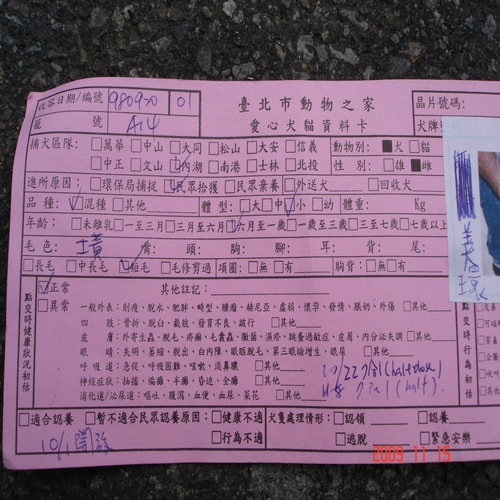 收容日期/編號 980920 01 臺北市動物之家 晶片號碼:
籠 號 A14 愛心犬貓資料卡 犬牌
捕犬區隊: □萬華□中山□大同□松山□大安□信義 動物別: ■犬□貓
□中正□文山□內湖□南港□士林□北投 性 別: □雄■雌
進所原因: □環保局捕捉□民眾拾獲□民眾棄養□外送犬 □回收犬
品 種: □混種□其他 體 型: □大□中□小□幼 體重: Kg
年齡: □未離乳□一至三月□三月至六月□六月至一歲□一歲至三歲□三至七歲□七歲以上
毛色: 土黃 嘴: 頭: 胸: 腳: 耳: 背: 尾:
□長毛□中長毛□短毛□毛修剪過 項圈: □無□有 胸背: □無□有
點交時健康狀況初估 □正常 其他註記:
□異常 一般外表: 削瘦、脫水、肥胖、畸型、腫瘤、赫尼亞、虛弱、懷孕、發情、脹奶、外傷□其他
四 肢: 骨折、脫臼、截肢、發育不良、跛行 □其他
皮 膚: 外寄生蟲、脫毛、疥癬、毛囊蟲、黴菌、濕疹、跳蚤過敏症、皮屑、內分泌失調□其他
眼 睛: 失明、萎縮、脫出、白內障、眼瞼脫毛、第三眼瞼增生、眼屎 □其他
呼 吸 道: 急促、呼吸困難、咳嗽、流鼻膿 □其他
神經症狀: 抽搐、偏癱、半癱、昏迷、全癱 □其他
消化道/泌尿道: 嘔吐、腹瀉、血便、血尿、菜花 □其他
10/22
□適合認養 □暫不適合民眾認養原因: □健康不適 犬隻處理情形: □認領 □認養
□行為不適 □逃脫 □緊急安樂
10/1 開放
2009 11 15